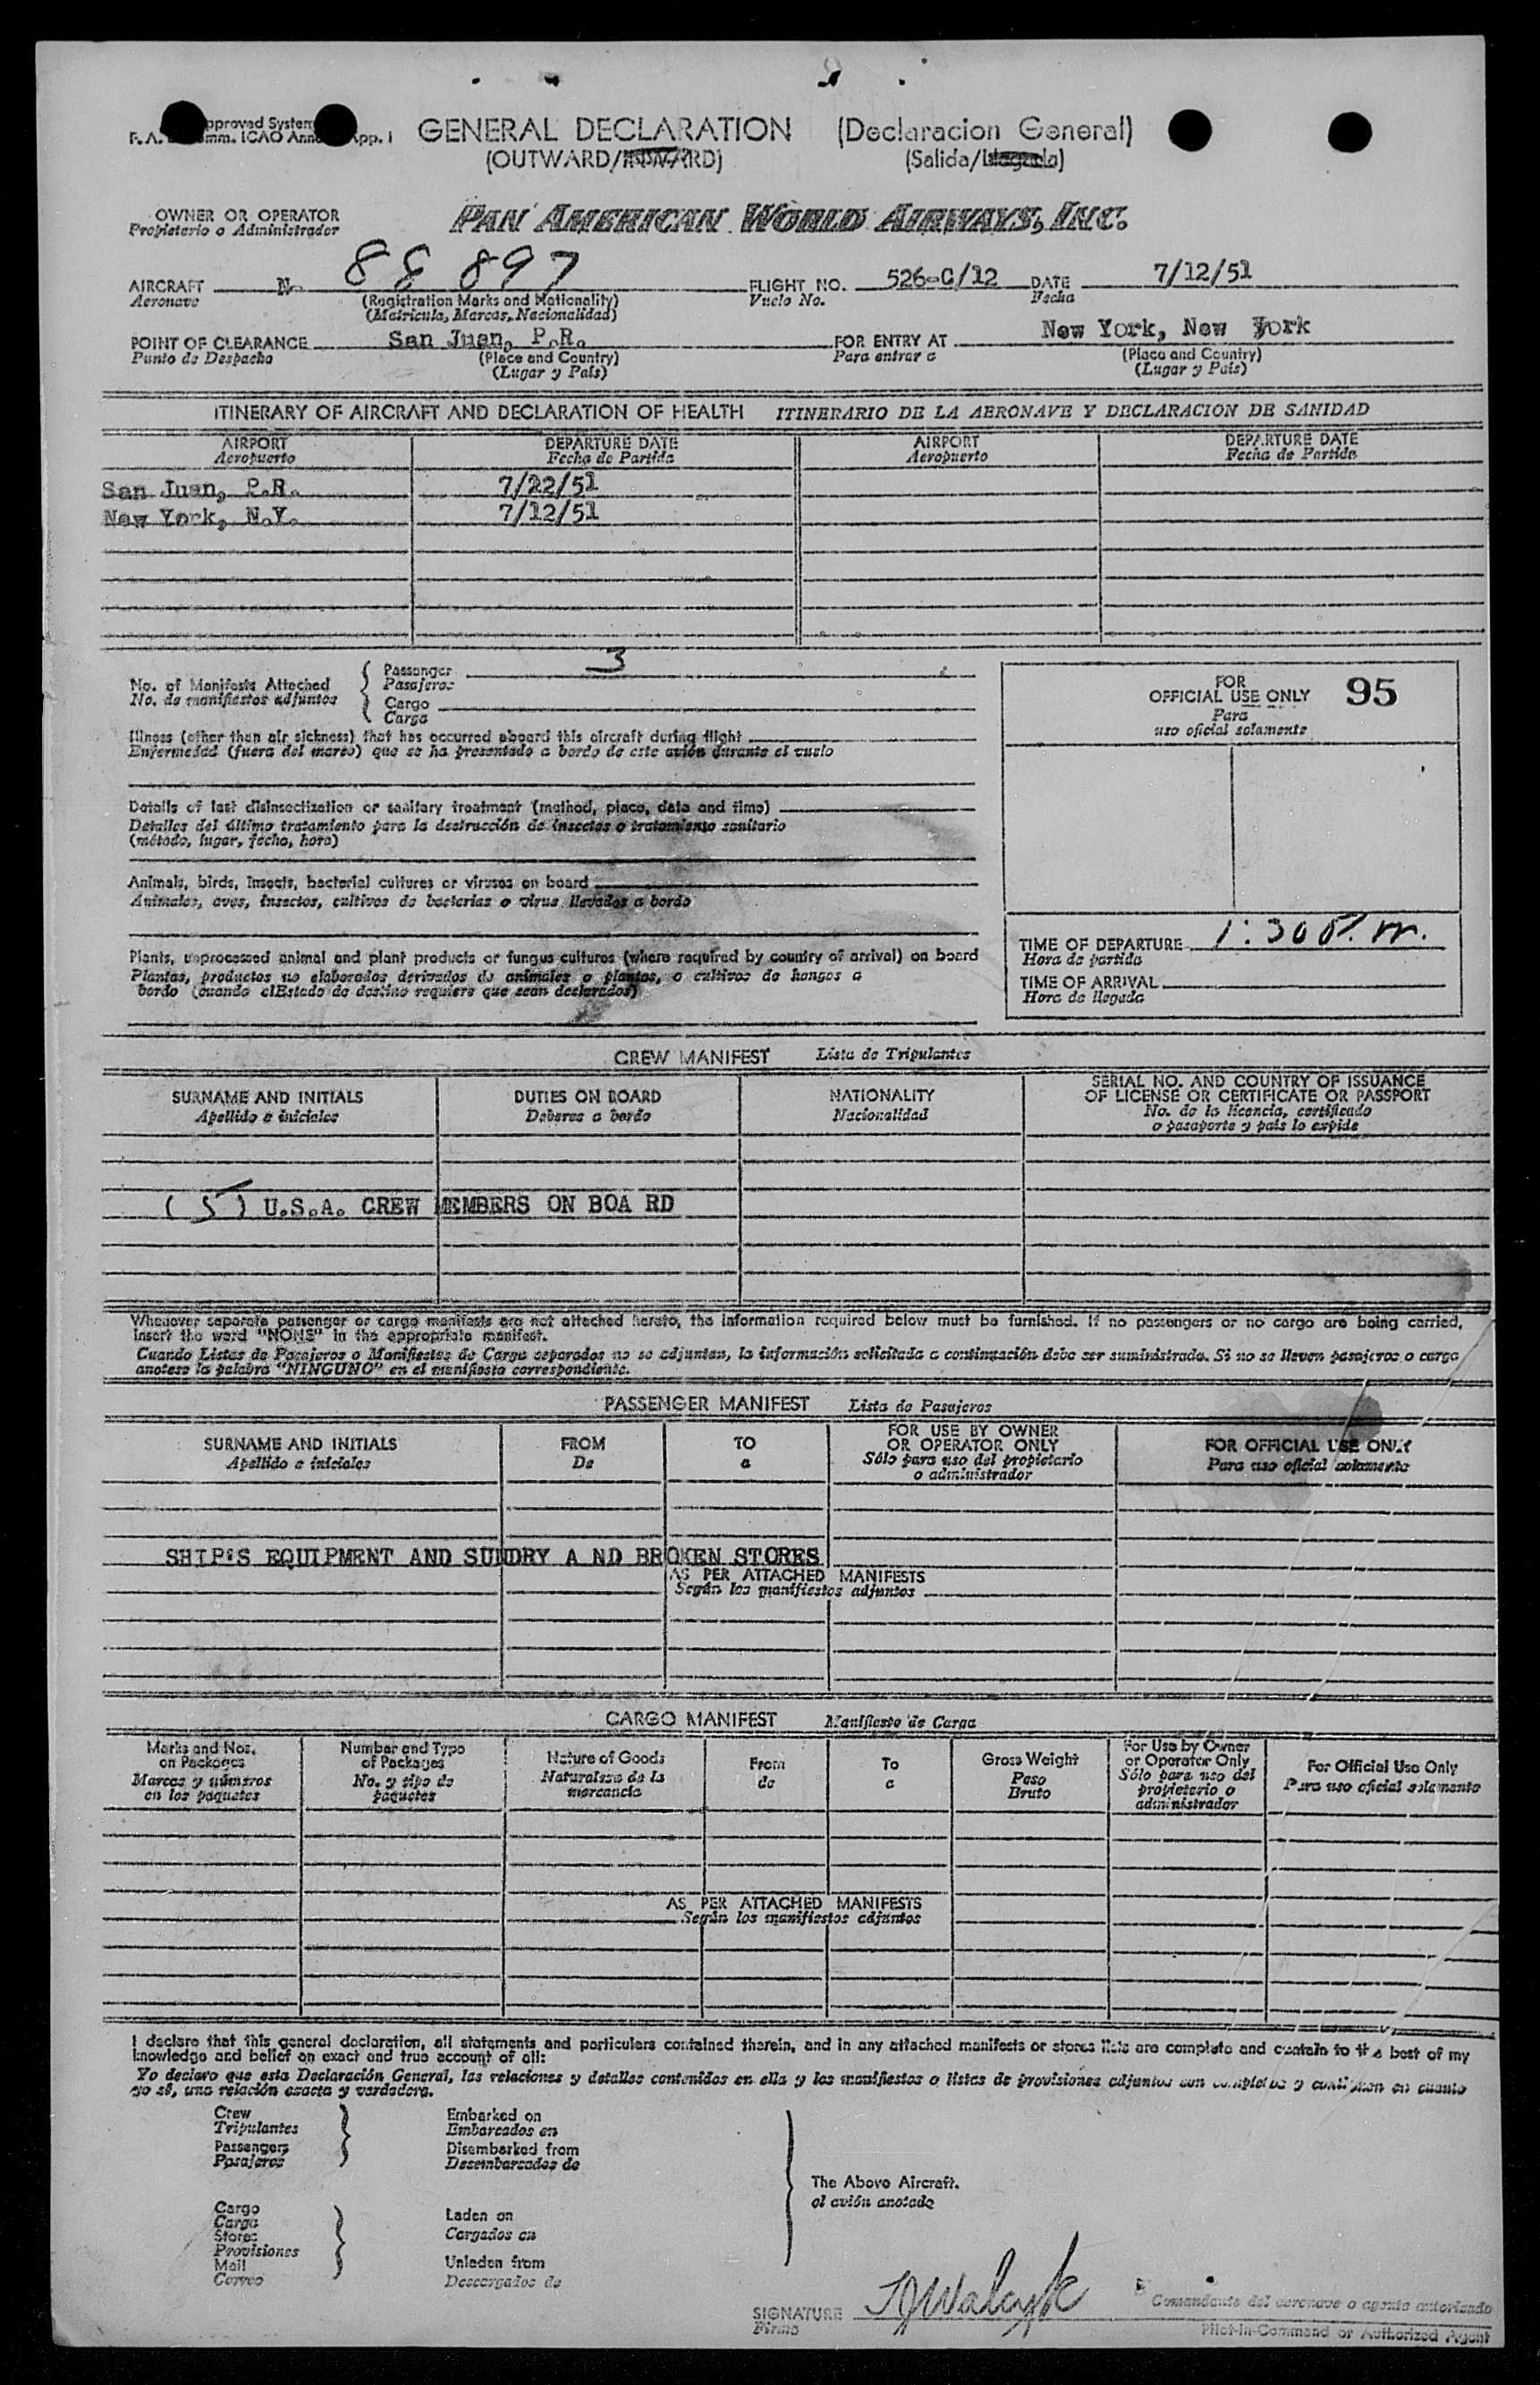 pproved System
F. A. mm. ICAO Ann App. I
GENERAL DECLARATION (Declaracion General)
(OUTWARD/INWARD) (Salida/Llegada)
OWNER OR OPERATOR
Propietario o Administrador
PAN AMERICAN WORLD AIRWAYS, INC.
AIRCRAFT N- 88 897 FLIGHT NO. 526-C/12 DATE 7/12/51
Aeronave (Registration Marks and Nationality) Vuelo No. Fecha
(Matricula, Marcas, Nacionalidad)
POINT OF CLEARANCE San Juan, P.R. FOR ENTRY AT New York, New York
Punto de Despacho (Place and Country) Para entrar a (Place and Country)
(Lugar y País) (Lugar y País)
ITINERARY OF AIRCRAFT AND DECLARATION OF HEALTH ITINERARIO DE LA AERONAVE Y DECLARACION DE SANIDAD
AIRPORT DEPARTURE DATE AIRPORT DEPARTURE DATE
Aeropuerto Fecha de Partida Aeropuerto Fecha de Partida
San Juan, P.R. 7/22/51
New York, N.Y. 7/12/51
No. of Manifests Attached Passenger 3
No. de manifiestos adjuntos Pasajeros
Cargo
Carga
FOR
OFFICIAL USE ONLY 95
Para
uso oficial solamente
Illness (other than air sickness) that has occurred aboard this aircraft during flight
Enfermedad (fuera del mareo) que se ha presentado a bordo de este avión durante el vuelo
Details of last disinsectization or sanitary treatment (method, place, date and time)
Detalles del último tratamiento para la destrucción de insectos o tratamiento sanitario
(método, lugar, fecha, hora)
Animals, birds, insects, bacterial cultures or viruses on board
Animales, aves, insectos, cultivos de bacterias o virus llevados a bordo
Plants, unprocessed animal and plant products or fungus cultures (where required by country of arrival) on board
Plantas, productos no elaborados derivados de animales o plantas, o cultivos de hongos a
bordo (cuando elEstado de destino requiere que sean declarados)
TIME OF DEPARTURE 1:30 P.m.
Hora de partida
TIME OF ARRIVAL
Hora de llegada
CREW MANIFEST Lista de Tripulantes
SURNAME AND INITIALS DUTIES ON BOARD NATIONALITY SERIAL NO. AND COUNTRY OF ISSUANCE
OF LICENSE OR CERTIFICATE OR PASSPORT
Apellido e iniciales Deberes a bordo Nacionalidad No. de la licencia, certificado
o pasaporte y país lo expide
(5) U.S.A. CREW MEMBERS ON BOA RD
Whenever separate passenger or cargo manifests are not attached hereto, the information required below must be furnished. If no passengers or no cargo are being carried,
insert the word "NONE" in the appropriate manifest.
Cuando Listas de Pasajeros o Manifiestos de Carga separados no se adjuntan, la información solicitada a continuación debe ser suministrada. Si no se lleven pasajeros o carga
anotese la palabra "NINGUNO" en el manifiesto correspondiente.
PASSENGER MANIFEST Lista de Pasajeros
SURNAME AND INITIALS FROM TO FOR USE BY OWNER
OR OPERATOR ONLY FOR OFFICIAL USE ONLY
Apellido e iniciales De a Sólo para uso del propietario
o administrador Para uso oficial solamente
SHIP'S EQUIPMENT AND SUNDRY A ND BROKEN STORES
AS PER ATTACHED MANIFESTS
Según los manifiestos adjuntos
CARGO MANIFEST Manifiesto de Carga
Marks and Nos.
on Packages
Marcas y números
en los paquetes
Number and Type
of Packages
No. y tipo de
paquetes
Nature of Goods
Naturaleza de la
mercancía
From
de
To
a
Gross Weight
Peso
Bruto
For Use by Owner
or Operator Only
Sólo para uso del
propietario o
administrador
For Official Use Only
Para uso oficial solamente
AS PER ATTACHED MANIFESTS
Según los manifiestos adjuntos
I declare that this general declaration, all statements and particulars contained therein, and in any attached manifests or stores lists are complete and contain to the best of my
knowledge and belief an exact and true account of all:
Yo declaro que esta Declaración General, las relaciones y detalles contenidos en ella y los manifiestos o listas de provisiones adjuntos son completos y contienen en cuanto
yo sé, una relación exacta y verdadera.
Crew
Tripulantes
Passengers
Pasajeros
Embarked on
Embarcados en
Disembarked from
Desembarcados de
The Above Aircraft.
el avión anotado
Cargo
Carga
Stores
Provisiones
Mail
Correo
Laden on
Cargados en
Unladen from
Descargados de
SIGNATURE
Firma
Comandante del aeronave o agente autorizado
Pilot-in-Command or Authorized Agent